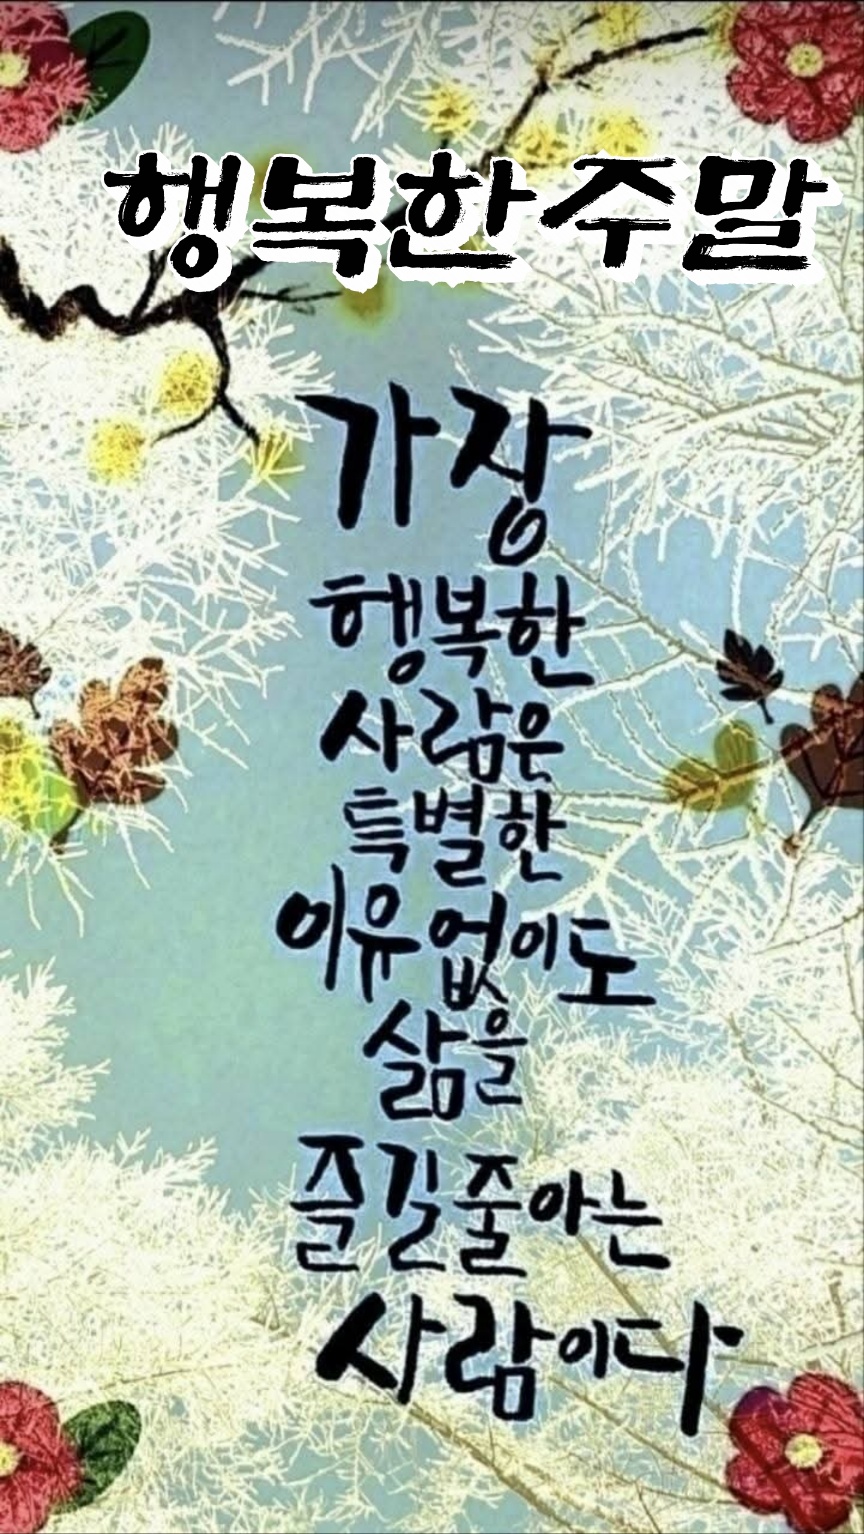 행복한 주말
가장
행복한
사람은
특별한
이유 없이도
삶을
즐길줄 아는
사람이다